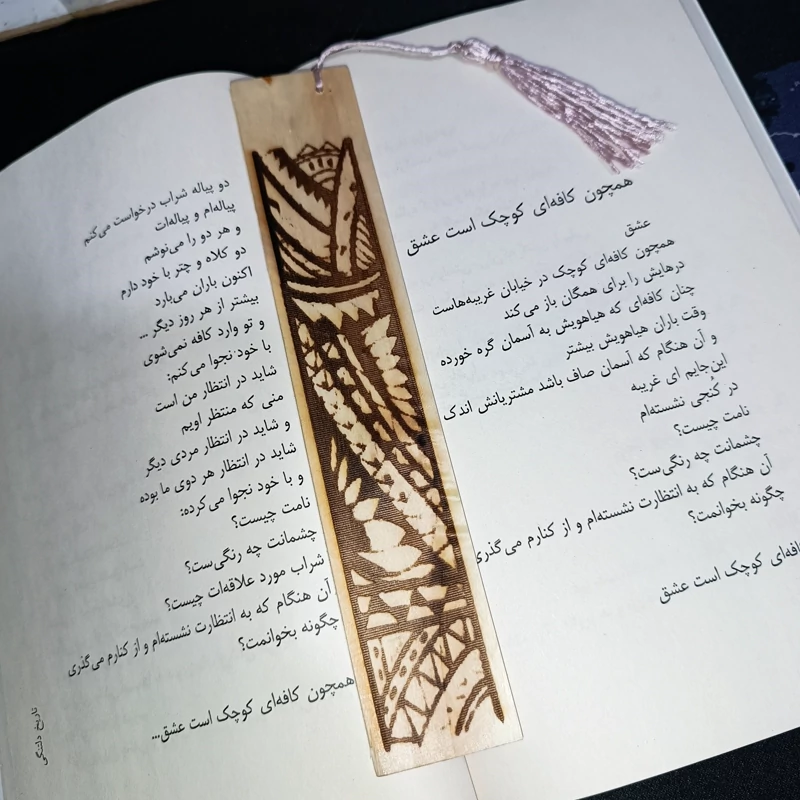 همچون کافه‌ای کوچک است عشق
عشق
همچون کافه‌ای کوچک در خیابان غریبه‌هاست
درهایش را برای همگان باز می‌کند
چنان کافه‌ای که هیاهویش به آسمان گره خورده
وقت باران هیاهویش بیشتر
و آن هنگام که آسمان صاف باشد مشتریانش اندک
این‌جایم ای غریبه
در کُنجی نشسته‌ام
نامت چیست؟
چشمانت چه رنگی‌ست؟
آن هنگام که به انتظارت نشسته‌ام و از کنارم می گذری
چگونه بخوانمت؟
کافه‌ای کوچک است عشق
دو پیاله شراب درخواست می‌کنم
پیاله‌ام و پیاله‌ات
و هر دو را می‌نوشم
دو کلاه و چتر با خود دارم
اکنون باران می‌بارد
بیشتر از هر روز دیگر ...
و تو وارد کافه نمی‌شوی
با خود نجوا می‌کنم:
شاید در انتظار من است
منی که منتظر اویم
و شاید در انتظار مردی دیگر
شاید در انتظار هر دوی ما بوده
و با خود نجوا می‌کرده:
نامت چیست؟
چشمانت چه رنگی‌ست؟
شراب مورد علاقه‌ات چیست؟
آن هنگام که به انتظارت نشسته‌ام و از کنارم می‌گذری
چگونه بخوانمت؟
همچون کافه‌ای کوچک است عشق...
تاریخ دلتنگی